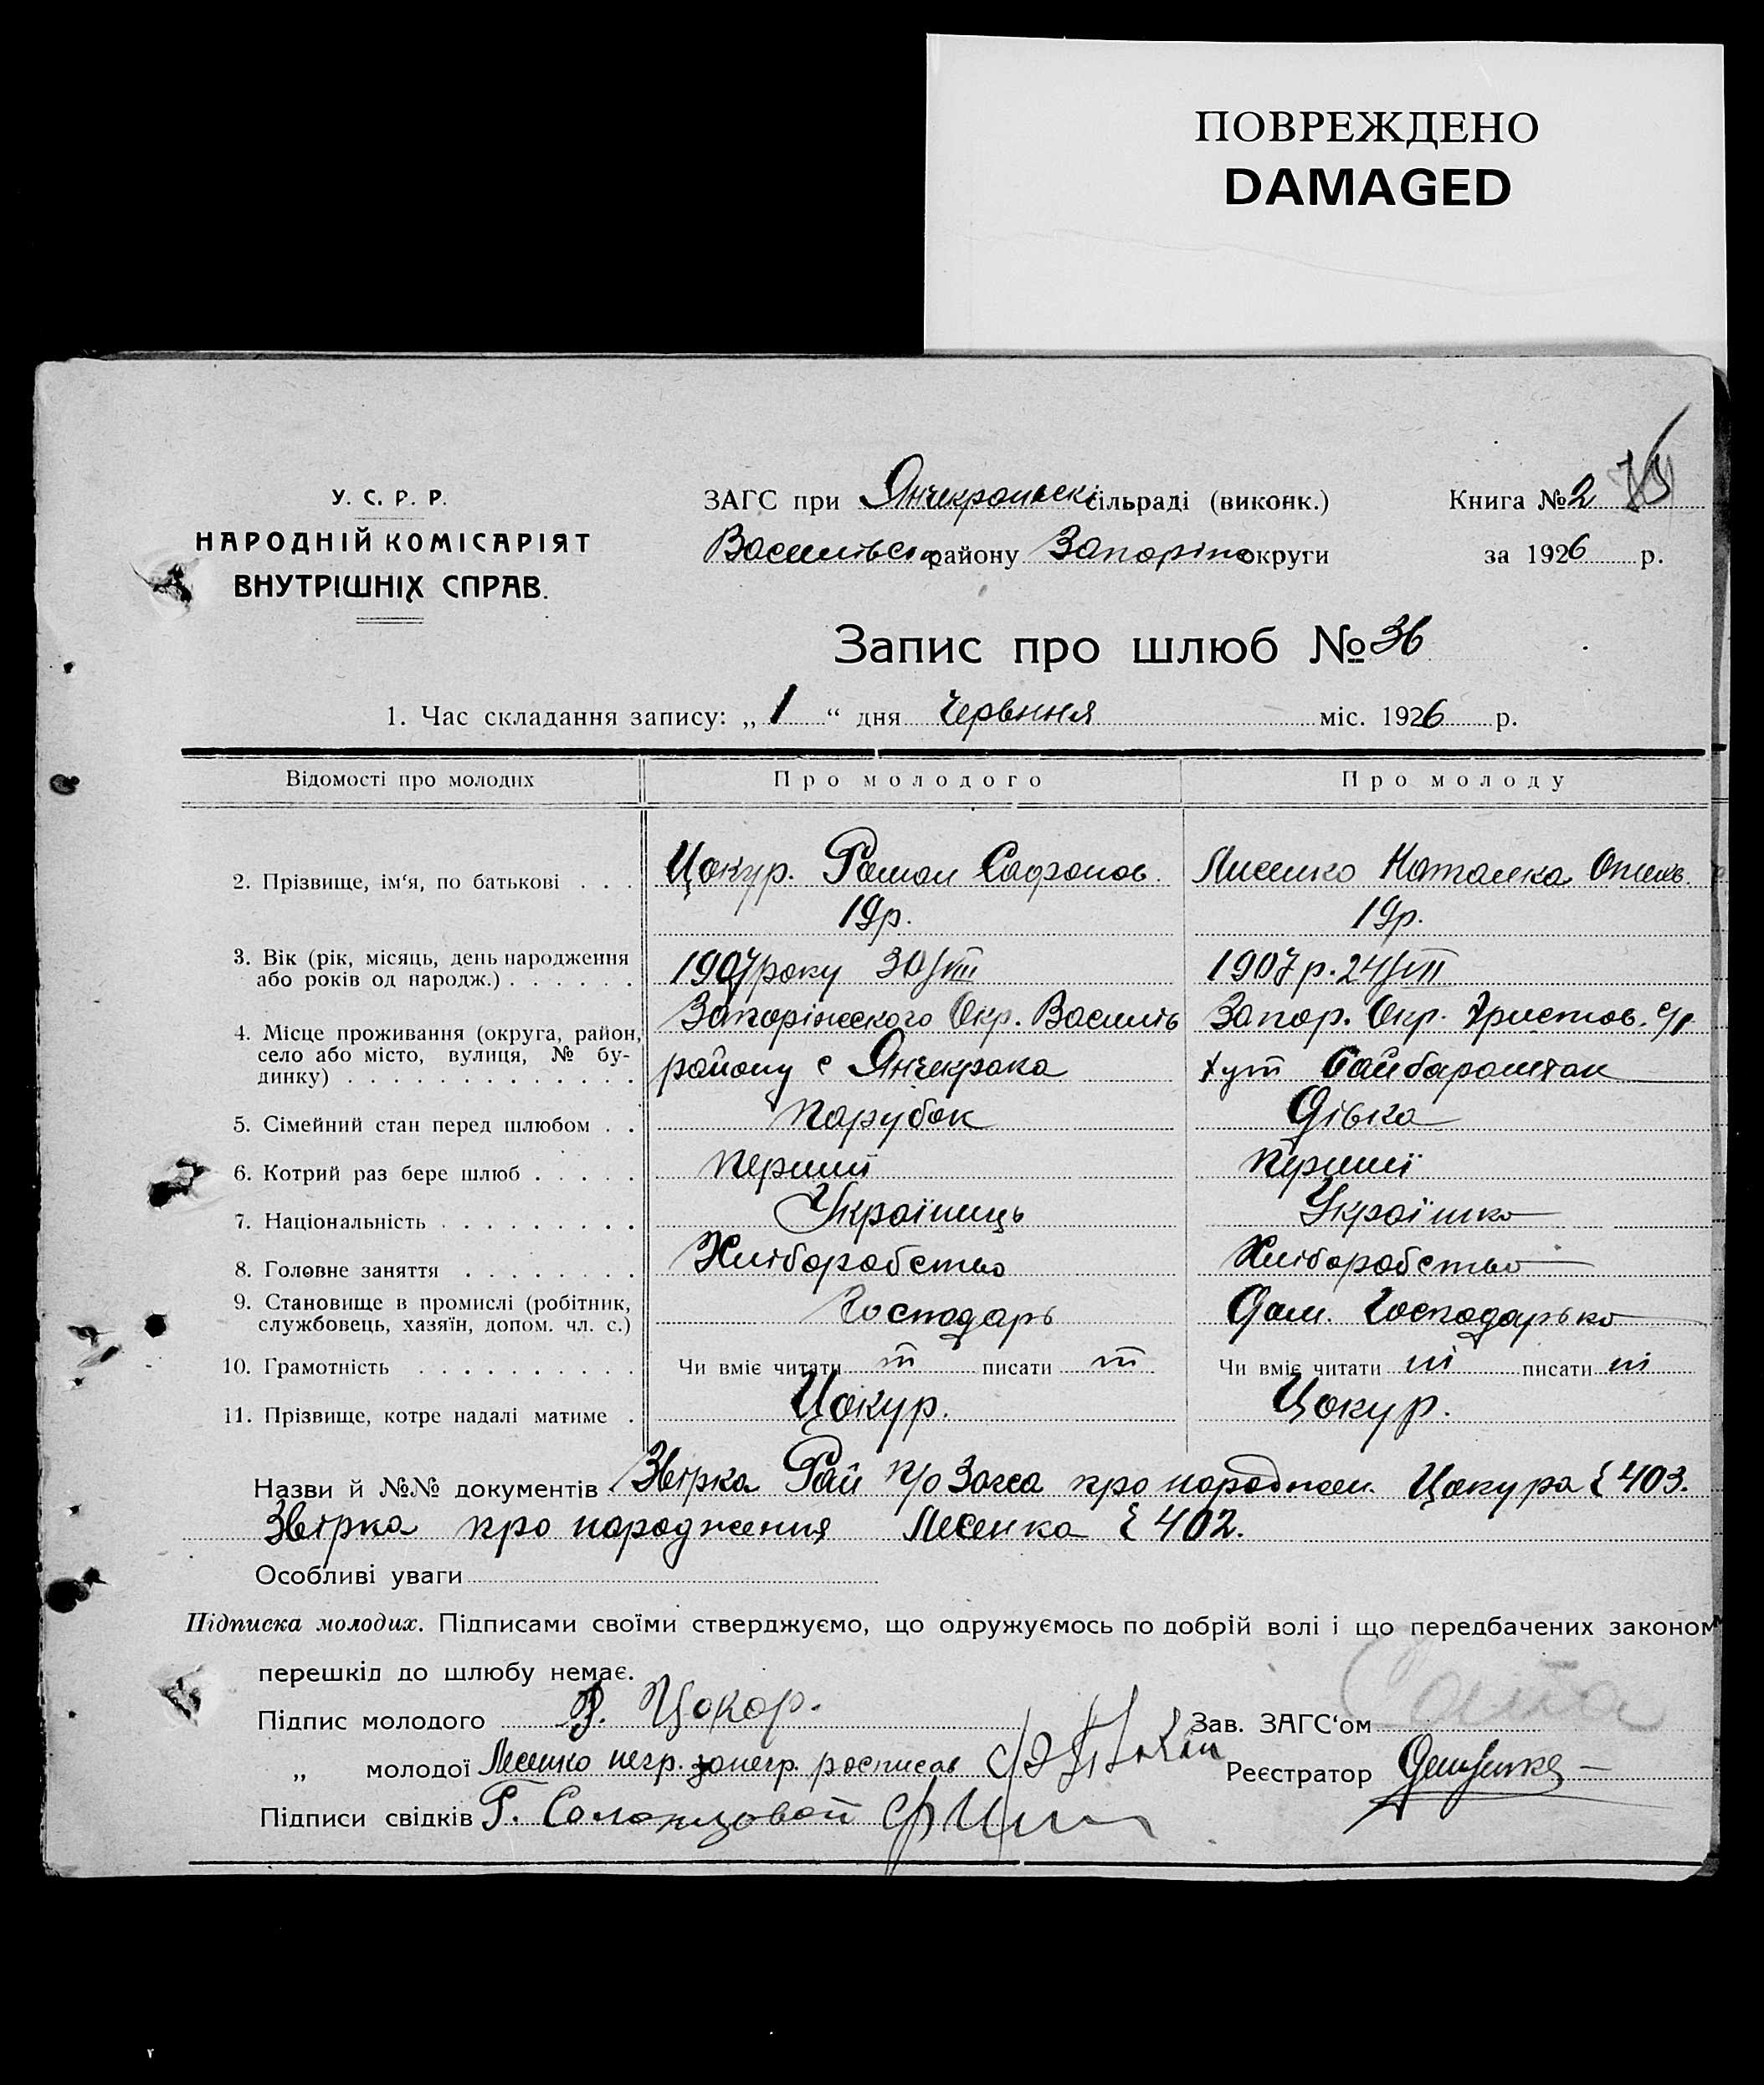 ПОВРЕЖДЕНО
DAMAGED
У. С. Р. Р.
НАРОДНІЙ КОМІСАРІЯТ
ВНУТРІШНІХ СПРАВ.
ЗАГС при Янчекракські сільраді (виконк.)
Василівськ району Запоріж округи
Книга № 2
за 1926 р.
Запис про шлюб № 36
1. Час складання запису: „ 1 “ дня Червння міс. 1926 р.
Відомості про молодих Про молодого Про молоду
2. Прізвище, ім‘я, по батькові . . . Цокур. Роман Сафронов. Лисенко Наталка
19р. 19р.
3. Вік (рік, місяць, день народження або років од народж.) . . . . . . 1907 року 30/VIII 1907 р. 24/VIII
4. Місце проживання (округа, район, село або місто, вулиця, № будинку) . . . . . . . . . . . . . Запоріжского Окр. Василів Запор. Окр. Христов. с/р.
району с Янчекрака хут
5. Сімейний стан перед шлюбом . . Парубок Дівка
6. Котрий раз бере шлюб . . . . . Перший Перший
7. Національність . . . . . . . . . Українець Українко
8. Головне заняття . . . . . . . . Хліборобство Хліборобство
9. Становище в промислі (робітник, службовець, хазяїн, допом. чл. с.) Господарь Дом. Господарько
10. Грамотність . . . . . . . . . . Чи вміє читати писати Чи вміє читати ні писати ні
11. Прізвище, котре надалі матиме . Цокур. Цокур.
Назви й №№ документів Звірка Рай п/о Загса про народжен. Цокура 403.
Звірка про народження Лесенка 402.
Особливі уваги
Підписка молодих. Підписами своїми стверджуємо, що одружуємось по добрій волі і що передбачених законом
перешкід до шлюбу немає.
Підпис молодого Р. Цокор. Зав. ЗАГС‘ом
„ молодої Лесенко негр. занегр. росписав Реєстратор
Підписи свідків Г.